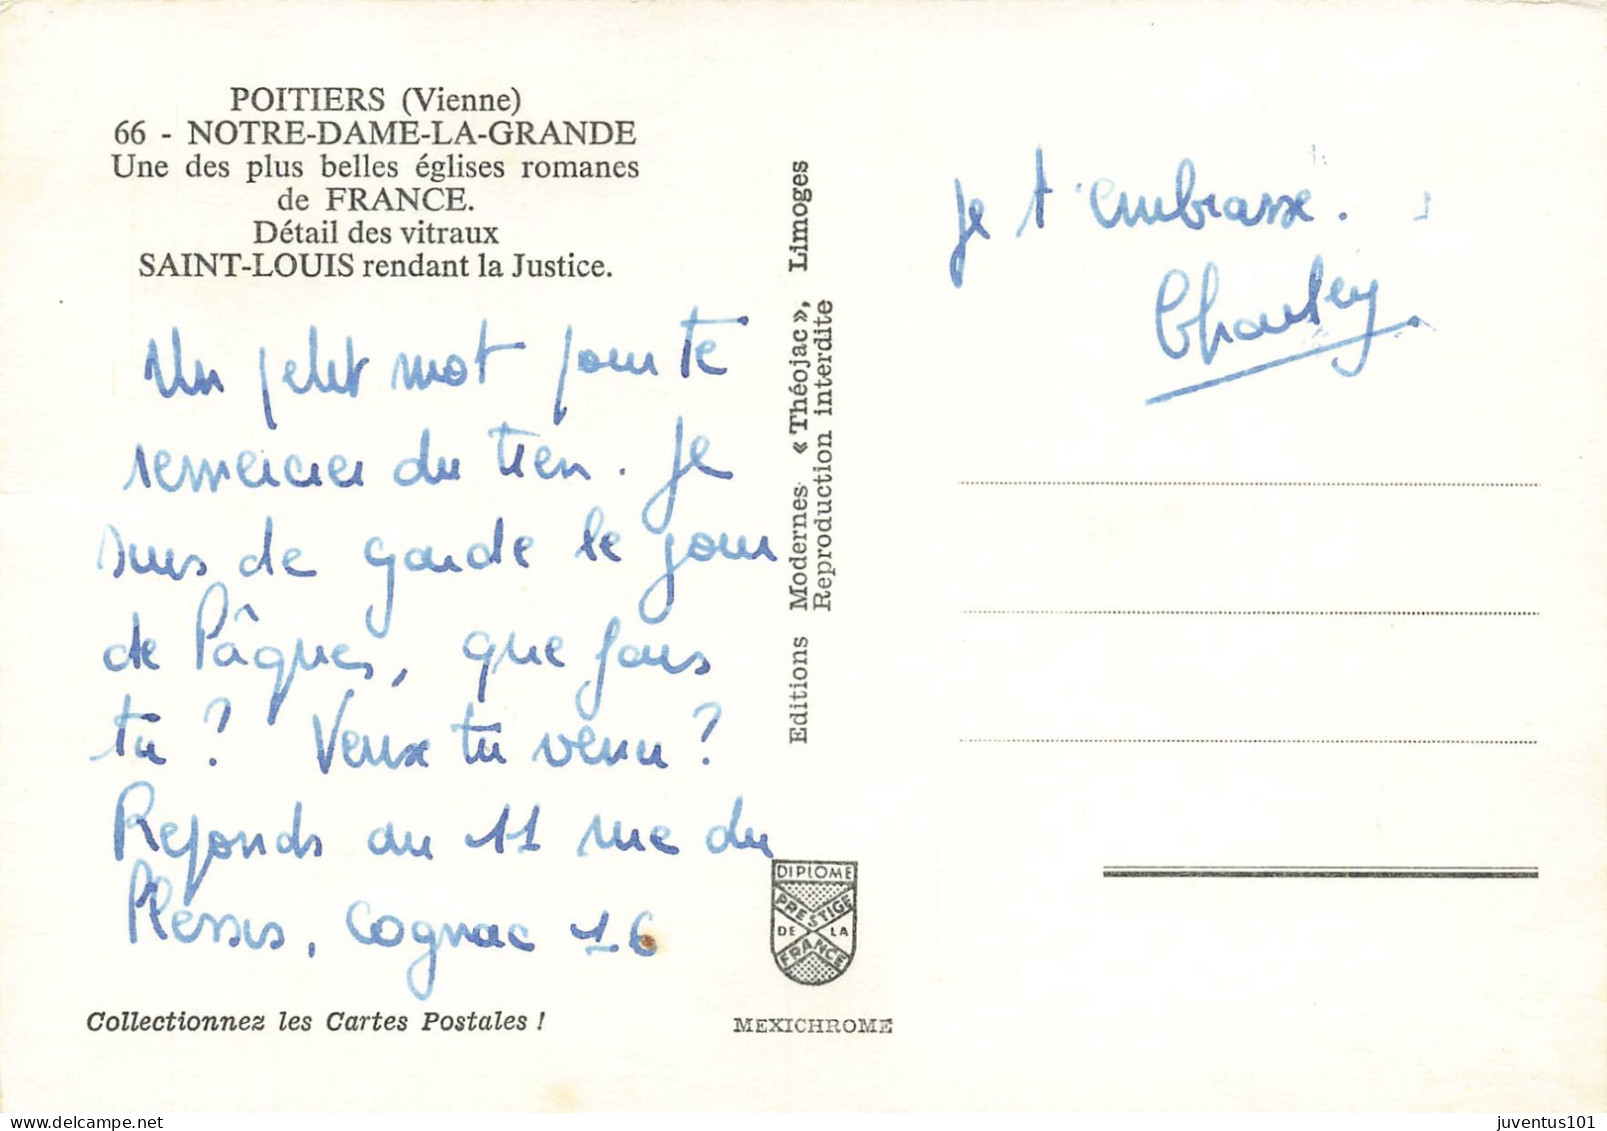 POITIERS (Vienne)
66 - NOTRE-DAME-LA-GRANDE
Une des plus belles églises romanes
de FRANCE.
Détail des vitraux
SAINT-LOUIS rendant la Justice.
Un petit mot pour te
remercier du tien. Je
suis de garde le jour
de Pâques, que fais
tu ? Veux tu venir ?
Reponds au 11 rue du
Plessis, Cognac 16
Collectionnez les Cartes Postales !
Editions Modernes « Théojac », Limoges
Reproduction interdite
DIPLOME
PRESTIGE
DE LA
FRANCE
MEXICHROME
Je t'embrasse.
Charley
juventus101